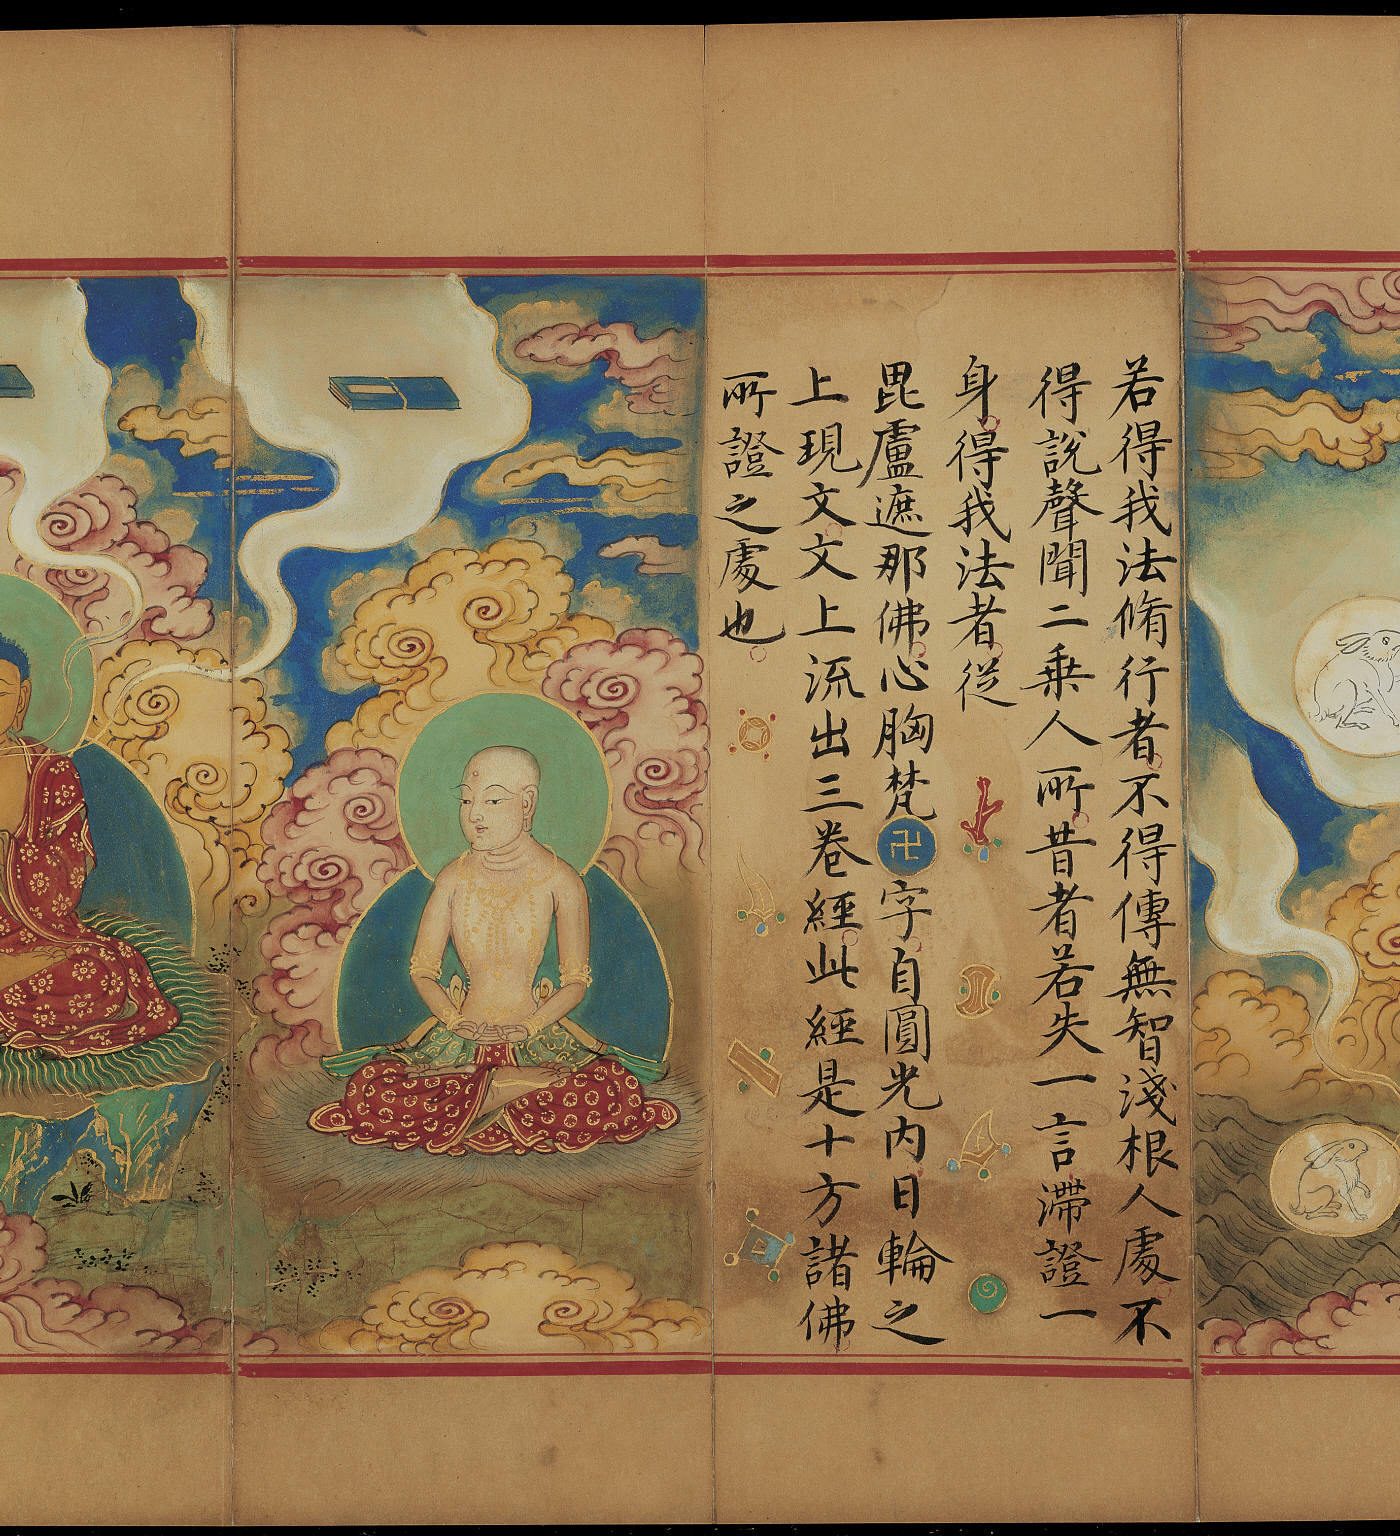 若得我法脩行者不得傳無智淺根人處不
得說聲聞二乘人所昔者若失一言滯證一
身得我法者從
毘盧遮那佛心胸梵卍字自圓光内日輪之
上現文文上流出三卷經此經是十方諸佛
所證之處也